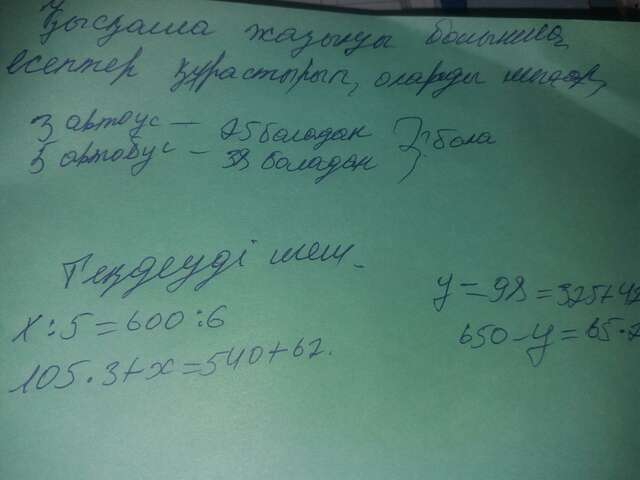 Қысқаша жазылуы бойынша
есептер құрастырып, оларды шығар,
3 автоус — 25 баладан } ? бала
5 автобус — 38 баладан
Теңдеуді шеш.
x : 5 = 600 : 6
105 · 3 + x = 540 + 62.
y = 98 = 325 + 42
650 - y = 65 ·